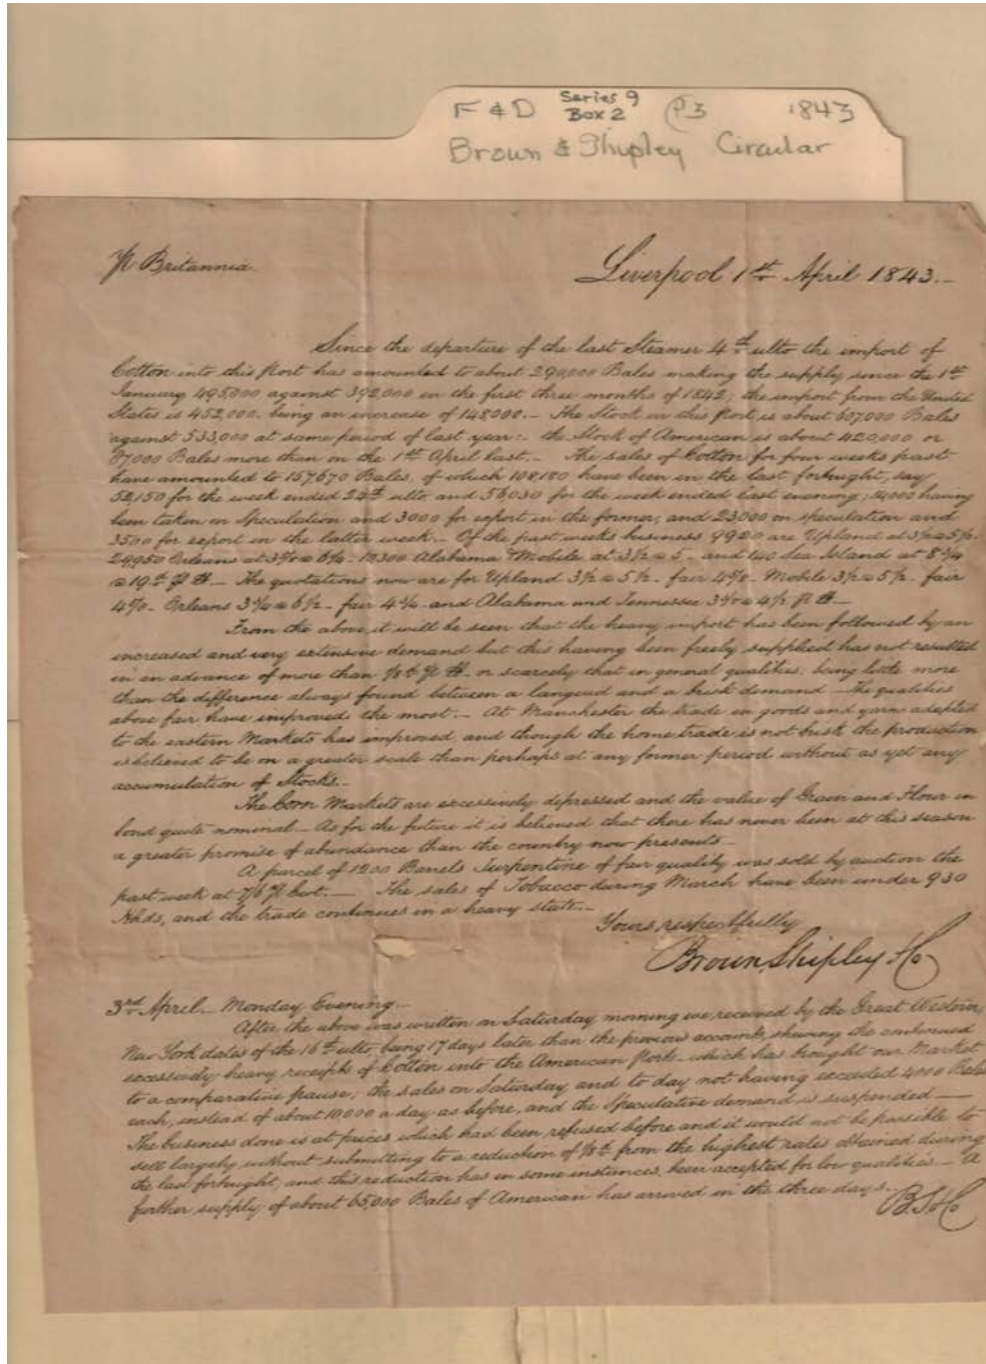 F & D Series 9 Box 2 P3 1843
Brown & Shipley Circular
Pr Britannia
Liverpool 1st April 1843.
Since the departure of the last Steamer 4th ulto the import of
Cotton into this Port has amounted to about 290,000 Bales making the supply since the 1st
January 495,000 against 392,000 in the first three months of 1842; the import from the United
States is 452,000, being an increase of 148000. The Stock in this Port is about 607000 Bales
against 533,000 at same period of last year: the Stock of American is about 420,000 or
87000 Bales more than on the 1st April last. The sales of Cotton for four weeks past
have amounted to 157670 Bales, of which 108,180 have been in the last fortnight, say
52,150 for the week ended 24th ulto and 56,030 for the week ended last evening; 24000 having
been taken on Speculation and 3000 for export in the former, and 23000 on speculation and
3500 for export in the latter week. Of the past weeks business 9920 are Upland at
29,950 Orleans at 10300 Alabama & Mobile at 3½ a 5 and 140 Sea Island at
a 19d pr lb. The quotations now are for Upland 3½ a 5½ fair Mobile 3½ a 5½ fair
Orleans fair and Alabama and Tennessee pr lb.
From the above it will be seen that the heavy import has been followed by an
increased and very extensive demand but this having been freely supplied has not resulted
in an advance of more than ⅛d pr lb. or scarcely that in general qualities, being little more
than the difference always found between a languid and a brisk demand. The qualities
above fair have improved the most. At Manchester the trade in goods and yarn adapted
to the eastern Markets has improved, and though the home trade is not brisk the production
is believed to be on a greater scale than perhaps at any former period without as yet any
accumulation of Stocks.
The Corn Markets are excessively depressed and the value of Grain and Flour in
bond quite nominal. As for the future it is believed that there has never been at this season
a greater promise of abundance than the country now presents
A parcel of 1200 Barrels Turpentine of fair quality was sold by auction the
past week at 7/6 pr Cwt. The sales of Tobacco during March have been under 930
Hhds, and the trade continues in a heavy state.
Yours respectfully
Brown Shipley & Co
3rd April Monday Evening
After the above was written on Saturday morning we received by the Great Western,
New York dates of the 16th ulto, being 17 days later than the previous accounts, shewing the continued
excessively heavy receipts of Cotton into the American ports, which has brought our Market
to a comparative pause; the sales on Saturday and to day not having exceeded 4000 Bales
each, instead of about 10,000 a day as before, and the Speculative demand is suspended
The business done is at prices which had been refused before and it would not be possible to
sell largely without submitting to a reduction of ⅛d from the highest rates obtained during
the last fortnight, and this reduction has in some instances been accepted for low qualities. A
further supply of about 65,000 Bales of American has arrived in the three days.
B S & Co